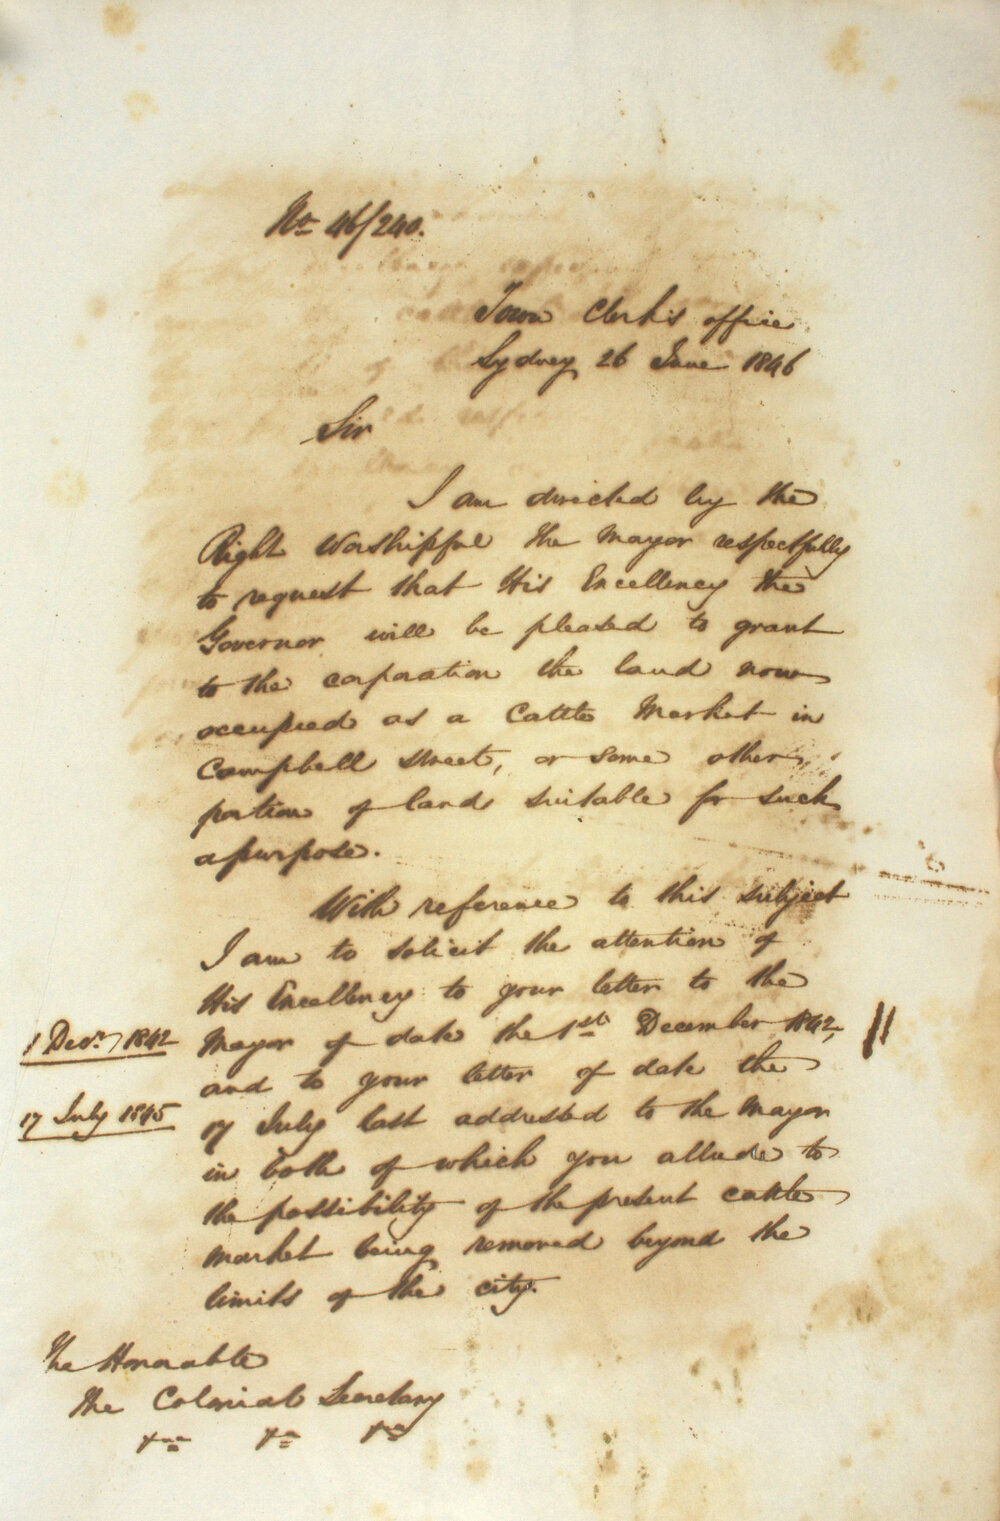 No 46/240.
Town Clerk's office
Sydney 26 June 1846
Sir
I am directed by the
Right Worshipful the Mayor respectfully
to request that His Excellency the
Governor will be pleased to grant
to the corporation the land now
occupied as a Cattle Market in
Campbell street, or some other
portion of land suitable for such
a purpose.
With reference to this subject
I am to solicit the attention of
His Excellency to your letter to the
Mayor of date the 1st December 1842,
1 Decr. 1842
and to your letter of date the
17 July last addressed to the Mayor
17 July 1845
in both of which you allude to
the possibility of the present cattle
market being removed beyond the
limits of the city.
The Honorable
The Colonial Secretary